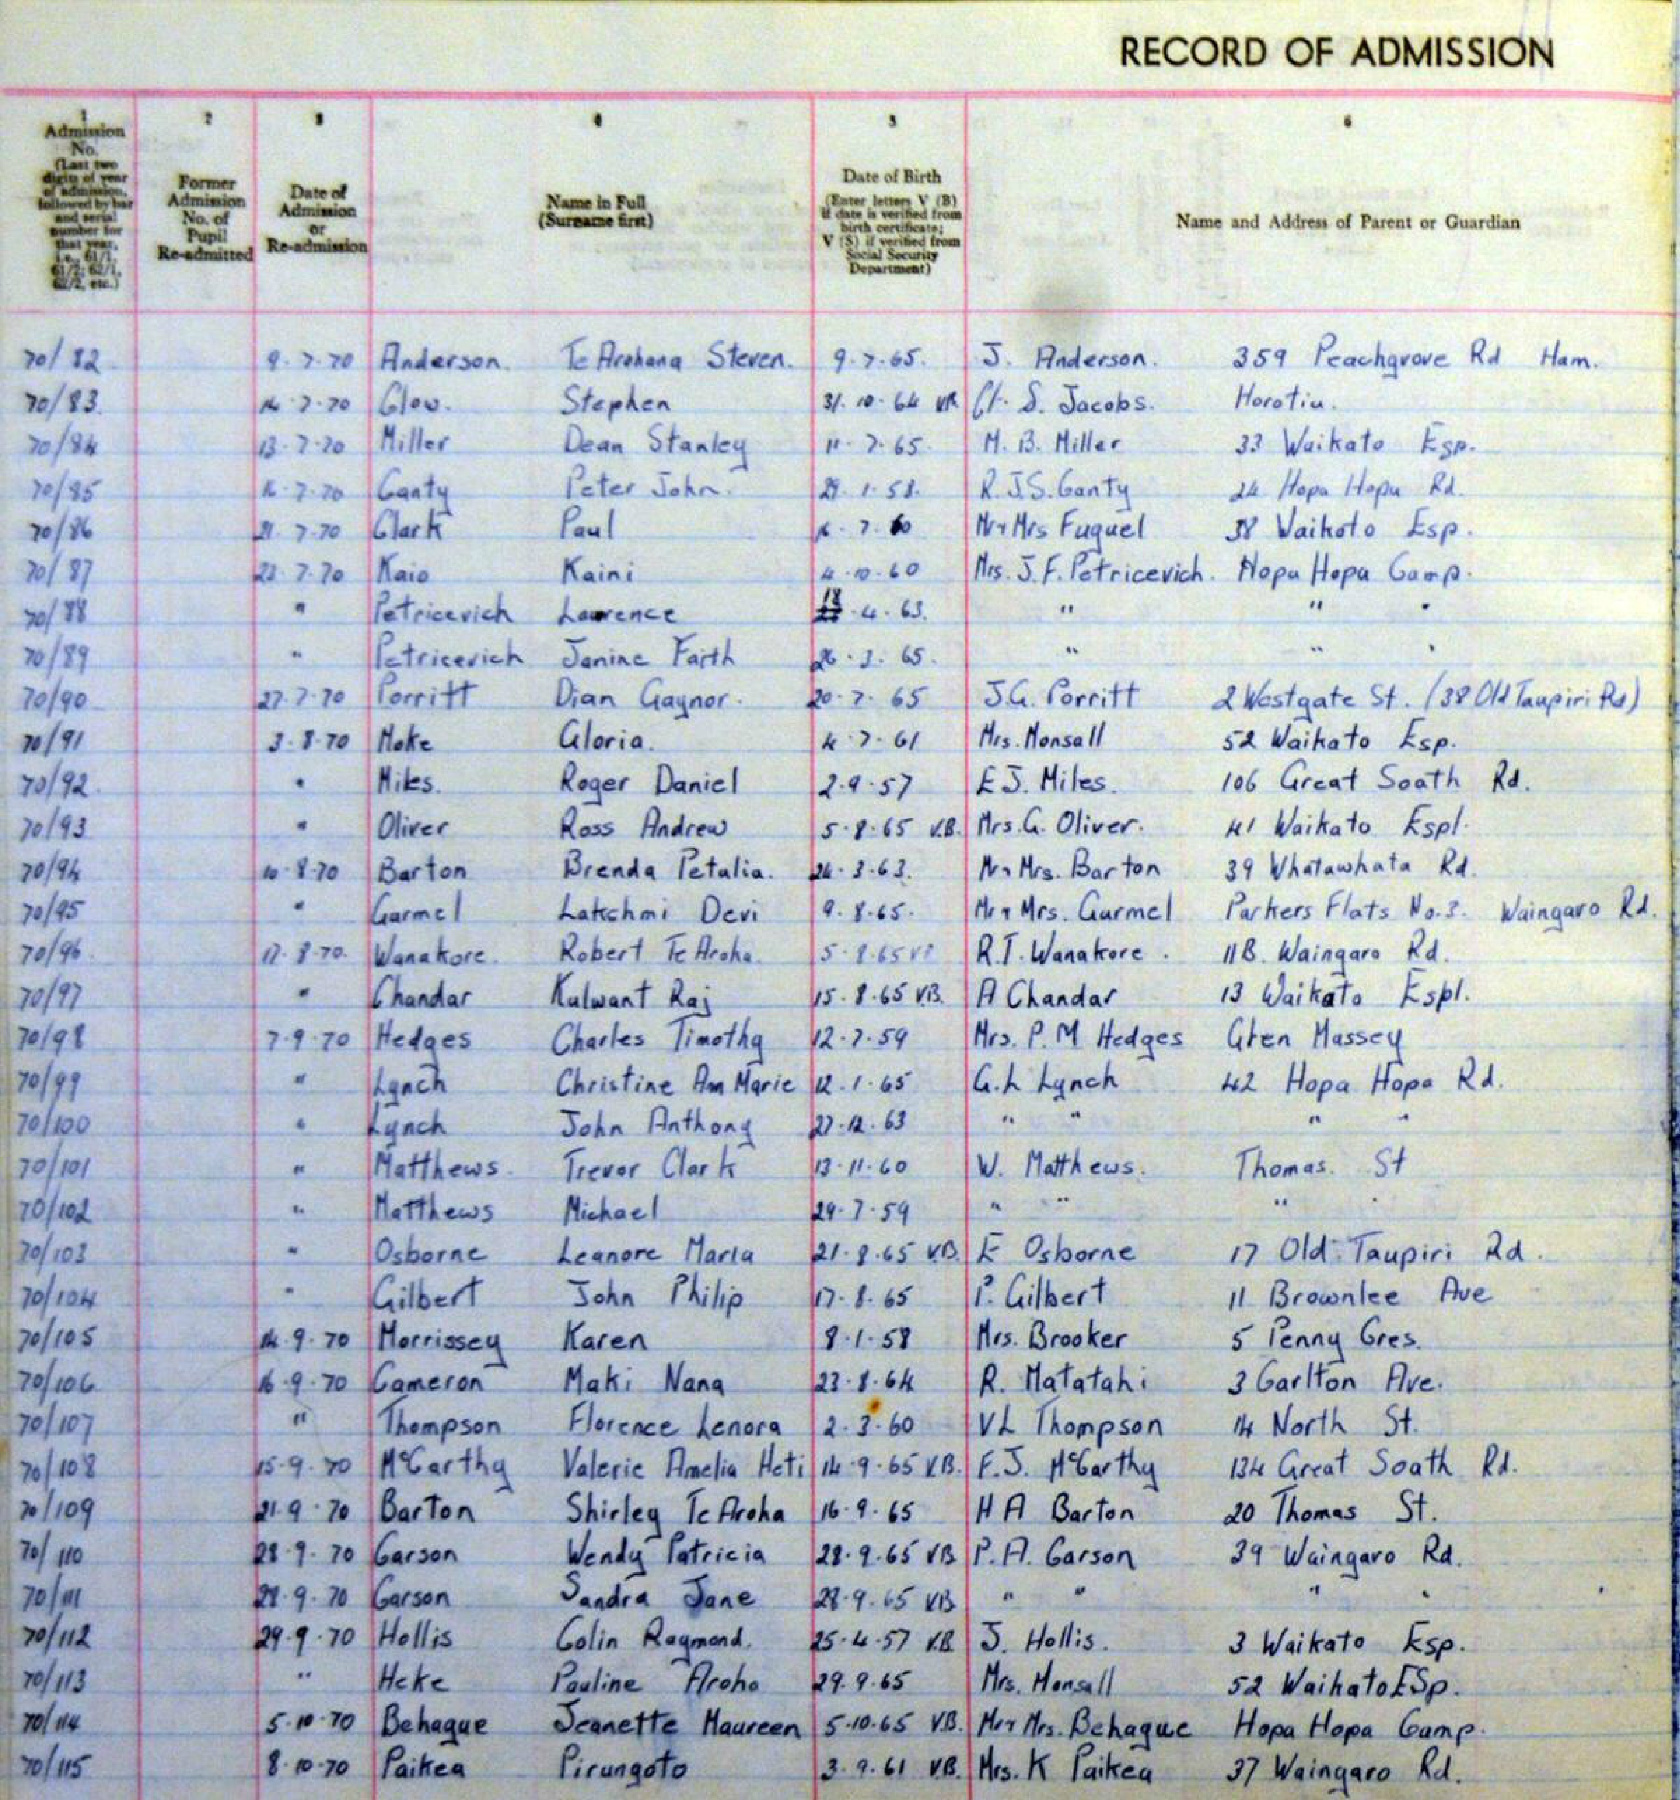 RECORD OF ADMISSION
1 2 3 4 5 6
Admission No. (Last two digits of year of admission, followed by bar and serial number for that year, i.e., 61/1, 61/2; 62/1, 62/2, etc.)
Former Admission No. of Pupil Re-admitted
Date of Admission or Re-admission
Name in Full (Surname first)
Date of Birth (Enter letters V (B) if date is verified from birth certificate; V (S) if verified from Social Security Department)
Name and Address of Parent or Guardian
70/82 9.7.70 Anderson. Te Arohana Steven. 9.7.65. J. Anderson. 359 Peachgrove Rd Ham.
70/83 14.7.70 Clow. Stephen 31.10.64 VB C/- S. Jacobs. Horotiu.
70/84 13.7.70 Miller Dean Stanley 11.7.65. M. B. Miller 33 Waikato Esp.
70/85 16.7.70 Canty Peter John. 29.1.58. R.J.S. Canty 24 Hopu Hopu Rd.
70/86 21.7.70 Clark Paul 7.60 Mr & Mrs Fuguel 38 Waikato Esp.
70/87 23.7.70 Kaio Kaini 4.10.60 Mrs. J.F. Petricevich. Hopu Hopu Camp.
70/88 " Petricevich Lawrence 18.4.63. " " "
70/89 " Petricevich Janine Faith 26.3.65. " " "
70/90 27.7.70 Porritt Dian Gaynor. 20.7.65 J.G. Porritt 2 Westgate St. (38 Old Taupiri Rd)
70/91 3.8.70 Moke Gloria. 4.7.61 Mrs. Monsall 52 Waikato Esp.
70/92 " Miles. Roger Daniel 2.9.57 E J. Miles. 106 Great South Rd.
70/93 " Oliver Ross Andrew 5.8.65 V.B. Mrs. G. Oliver. 41 Waikato Espl.
70/94 10.8.70 Barton Brenda Petalia. 24.3.63. Mr & Mrs. Barton 39 Whatawhata Rd.
70/95 " Garmel Lakshmi Devi 9.8.65. Mr & Mrs. Garmel Parkers Flats No.3. Waingaro Rd.
70/96 17.8.70. Wanakore. Robert Te Aroha. 5.8.65 VB R.T. Wanakore. 11B. Waingaro Rd.
70/97 " Chandar Kulwant Raj 15.8.65 V.B. A Chandar 13 Waikato Espl.
70/98 7.9.70 Hedges Charles Timothy 12.7.59 Mrs. P. M Hedges Glen Massey
70/99 " Lynch Christine Ann Marie 12.1.65 G.L Lynch 42 Hopu Hopu Rd.
70/100 " Lynch John Anthony 27.12.63 " " " "
70/101 " Matthews. Trevor Clark 13.11.60 W. Matthews. Thomas. St
70/102 " Matthews Michael 29.7.59 " " " "
70/103 " Osborne Leanore Maria 21.8.65 V.B. E Osborne 17 Old Taupiri Rd.
70/104 " Gilbert John Philip 17.8.65 P. Gilbert 11 Brownlee Ave
70/105 14.9.70 Morrissey Karen 8.1.58 Mrs. Brooker 5 Penny Cres.
70/106 16.9.70 Cameron Maki Nana 23.8.64 R. Matatahi 3 Carlton Ave.
70/107 " Thompson Florence Lenora 2.3.60 VL Thompson 14 North St.
70/108 15.9.70 McCarthy Valerie Amelia Heti 14.9.65 V.B. F.J. McCarthy 134 Great South Rd.
70/109 21.9.70 Barton Shirley Te Aroha 16.9.65 H A Barton 20 Thomas St.
70/110 28.9.70 Carson Wendy Patricia 28.9.65 VB P. A. Carson 39 Waingaro Rd.
70/111 28.9.70 Carson Sandra Jane 28.9.65 VB " " " "
70/112 29.9.70 Hollis Colin Raymond. 25.4.57 V.B J. Hollis. 3 Waikato Esp.
70/113 " Heke Pauline Aroha 29.9.65 Mrs. Monsall 52 Waikato ESp.
70/114 5.10.70 Behague Jeanette Maureen 5.10.65 V.B. Mr & Mrs. Behague Hopu Hopu Camp.
70/115 8.10.70 Paikea Pirungoto 3.9.61 V.B. Mrs. K Paikea 37 Waingaro Rd.